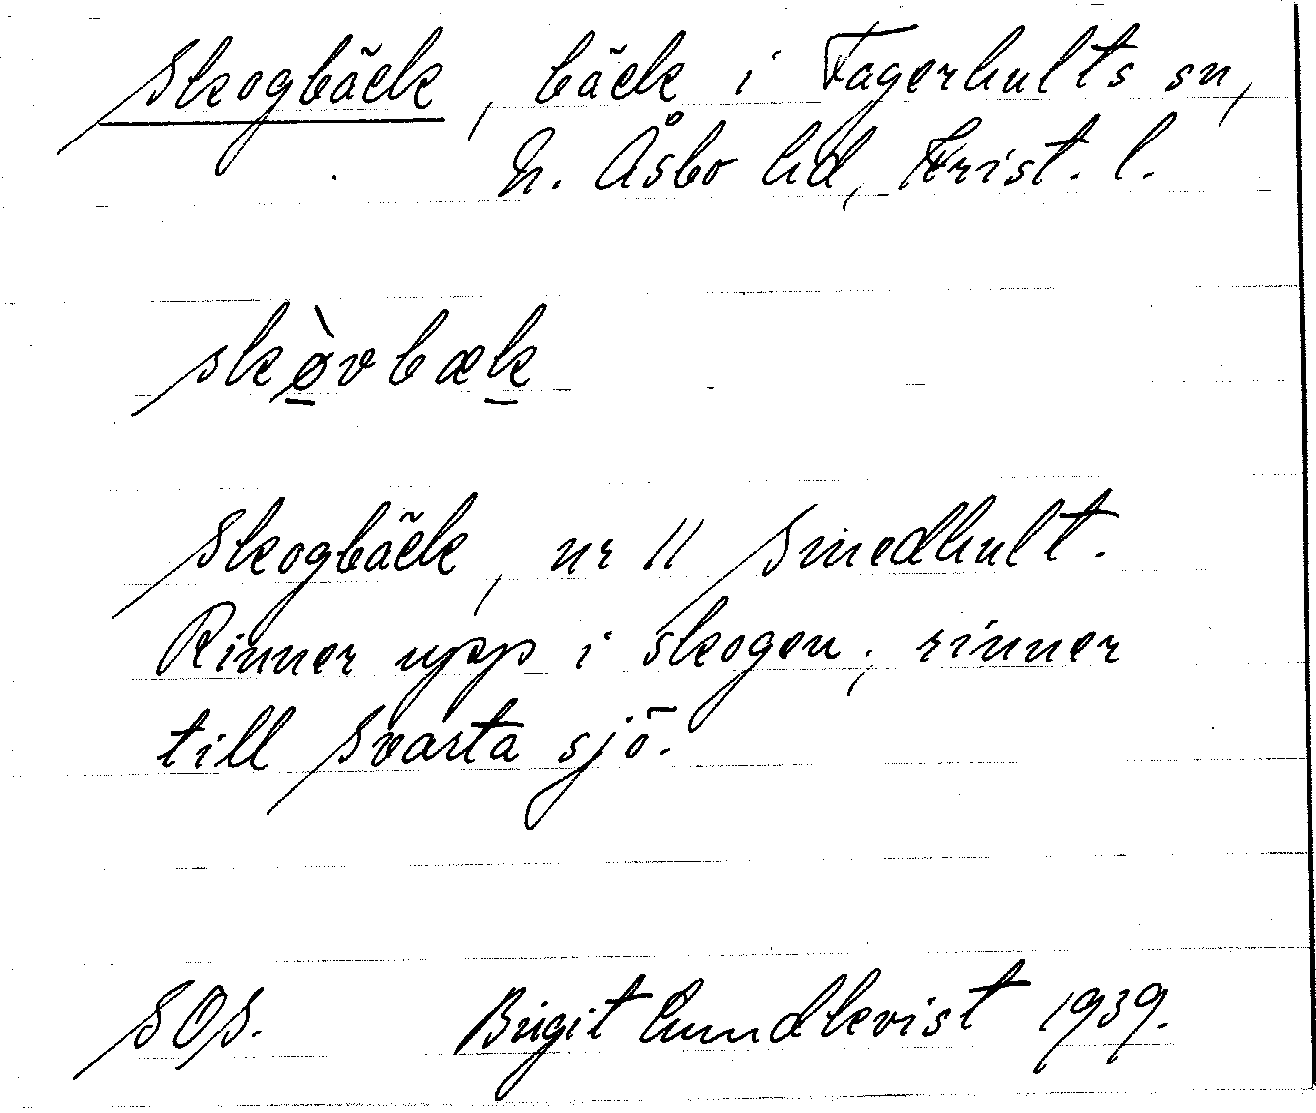 Skogbäck, bäck i Fagerhults sn,
N. Åsbo hd, Krist. l.
skø̀vbæk
Skogbäck, nr 11 Smedhult.
Rinner upp i skogen; rinner
till Svarta sjö.
SOS. Birgit Lundkvist 1939.